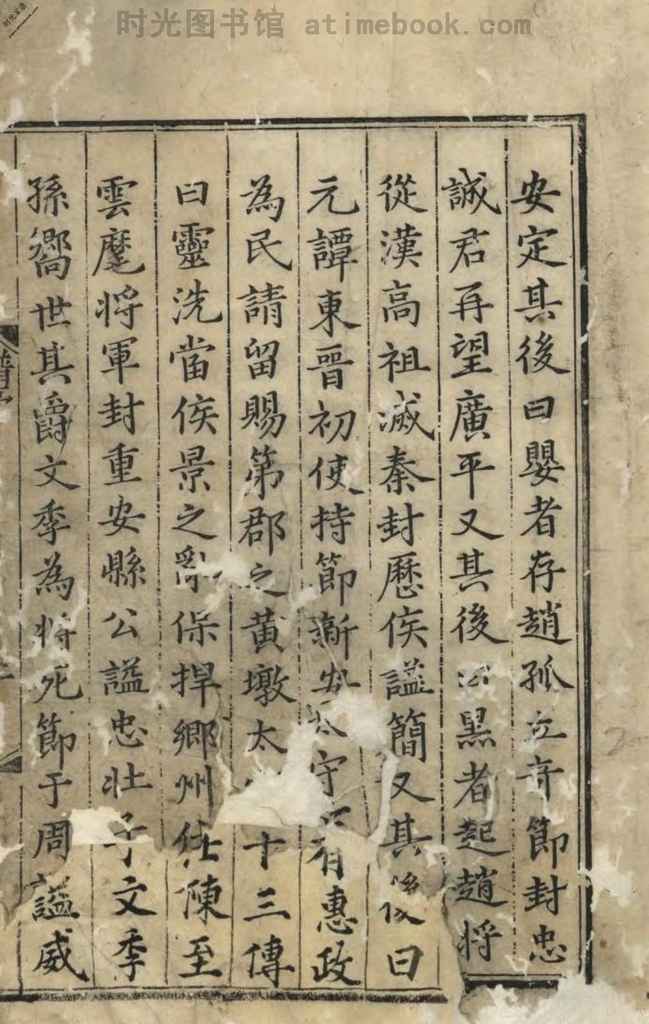 时光图书馆 atimebook.com
安定其後曰嬰者存趙孤立奇節封忠
誠君再望廣平又其後曰黑者起趙将
從漢高祖滅秦封歷侯謚簡又其後曰
元譚東晉初使持節新安太守有惠政
為民請留賜第郡之黃墩太十三傳
曰靈洗當侯景之亂保捍鄉州仕陳至
雲麾將軍封重安縣公謚忠壯子文季
孫嚮世其爵文季為將死節于周謚威